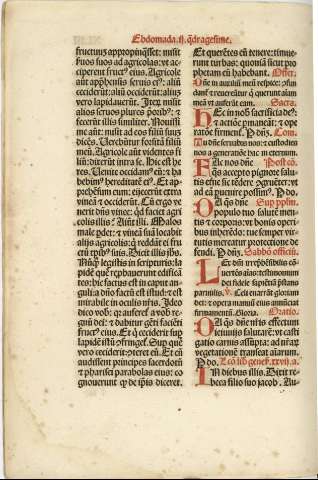 Ebdomada .ij. q̄dragesime.
fructuū appropinq̄sset: misit
suos suos ad agricolas: vt ac-
ciperent fruct⁹ eius. Agricole
aūt appħensis seruis ei⁹: aliū
ceciderūt: aliū occiderūt: aliuȝ
vero lapidauerūt. Iteȝ misit
alios seruos plures poribꝰ: ⁊
fecerūt illis similiter. Nouissi-
me aūt: misit ad eos filiū suuȝ
dicēs. Uerebūtur forsitā filiū
meū. Agricole aūt videntes fi-
liū: dixerūt intra se. Hic est he-
res. Uenite occidam⁹ eū: ⁊ ha
bebim⁹ hereditatē ei⁹. Et ap-
prehēsum eum: eiecerūt extra
vineā ⁊ occiderūt. Cū ergo ve
nerit dn̄s vinee: qd faciet agri
colis illis? Aiūt illi. Malos
male pdet: ⁊ vineā suā locabit
alijs agricolis: q̄ reddāt ei fru
ctū tpibꝰ suis. Dixit illis Jhs.
Nūq̄ legistis in scripturis: la
pidē quē reprobauerunt edificā
tes: hic factus est in caput an-
guli: a dn̄o factū est istud: ⁊ est
mirabile in oculis nr̄is. Ideo
dico vob: qꝛ auferet̄ a vob re-
gnū dei: ⁊ dabitur gēti faciēti
fruct⁹ eius. Et q̄ ceciderit sup
lapidē istū cōfringet̄. Sup quē
vero ceciderit: ȝteret eū. Et cū
audissent principes sacerdotū
⁊ pharisei parabolas eius: co
gnouerunt qꝫ de ipis diceret.
Et querētes eū tenere: timue-
runt turbas: quoniā sicut pro
phetam eū habebant. Offer.
Dn̄e in auxiliū meū respice: pfun
dant̄ ⁊ reuereāt̄ur q̄ querunt aīam
meā vt auferāt eam. Sacra.
Hec in nob sacrificia de⁹:
⁊ actiōe pmaneāt: ⁊ ope
ratōe firment̄. P dn̄ȝ. Com.
Tu dn̄e seruabis nos: ⁊ custodies
nos a generatiōe hac in eternum.
Fac nos dn̄e Postcō.
q̄s accepto pignore salu-
tis eius sic tēdere ȝgruēter: vt
ad eā puenire possim⁹. P do.
Da q̄s dn̄e Sup pplm̄.
populo tuo salutē men-
tis ⁊ corporis: vt bonis operi
bus inherēdo: tue semper vir-
tutis mereatur protectione de-
fendi. P dn̄ȝ. Sabbō officiū.
Lex dn̄i irrep̄hēsibilis cō-
uertēs aīas: testimonium
dei fidele sapiētiā p̄stans
paruulis. v̄. Celi enarrāt gloriam
dei: ⁊ opera manuū eius annūciat
firmamentū. Gloria. Oratio.
Da q̄s dn̄e nr̄is effectum
ieiunijs salutarē: vt casti
gatio carnis assupta: ad nr̄aȝ
vegetationē transeat aīarum.
P do. Lcō libꝛi geneſ. xxvij. a.
In diebus illis. Dixit re-
becca filio suo jacob. Au-